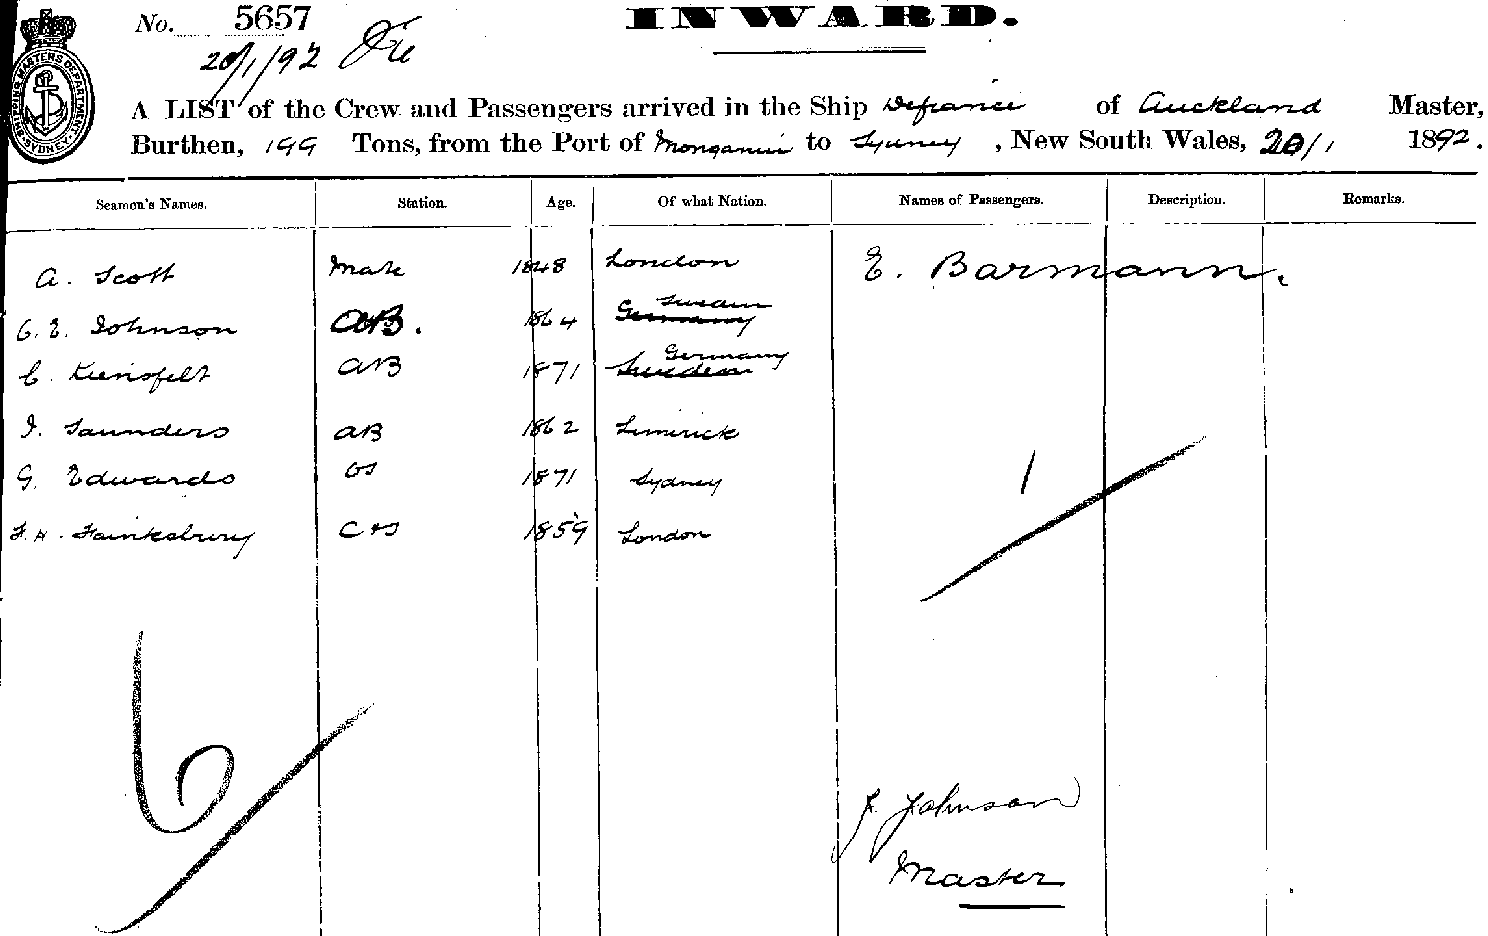 No. 5657
INWARD.
20/1/92
SHIPPING MASTERS DEPARTMENT SYDNEY
A LIST of the Crew and Passengers arrived in the Ship Defiance of Auckland Master,
Burthen, 199 Tons, from the Port of Monganui to Sydney, New South Wales, 20/1 1892.
Seamen's Names. Station. Age. Of what Nation. Names of Passengers. Description. Remarks.
A. Scott Mate 1848 London E. Barmann.
C. E. Johnson AB. 1864 Germany Sweden
C. AB 1871 Sweden Germany
J. Saunders AB 1862 Limerick
G. Edwards OS 1871 Sydney
F. H. C & S 1859 London
1
6
J. Johnson
Master